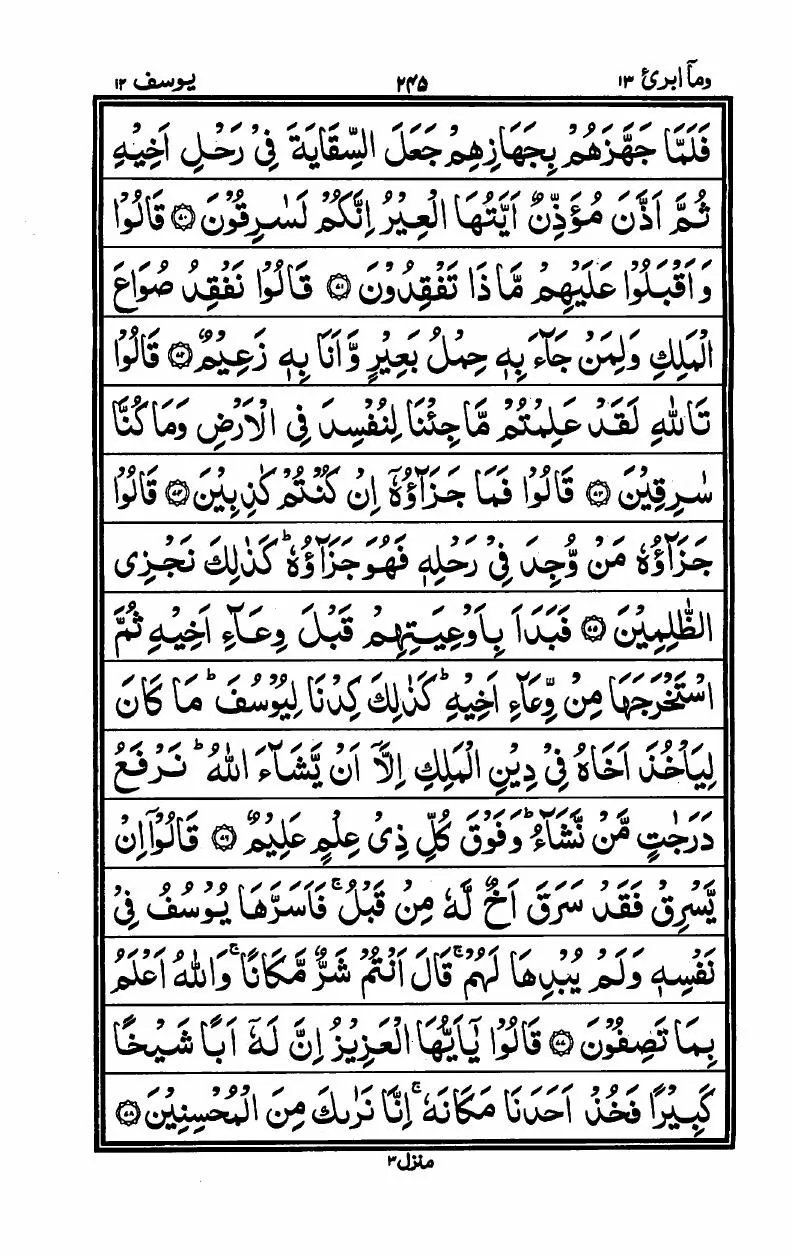 ومآ ابرئ ١٣ ٢٤٥ يوسف ١٢
فَلَمَّا جَهَّزَهُمْ بِجَهَازِهِمْ جَعَلَ السِّقَايَةَ فِيْ رَحْلِ اَخِيْهِ
ثُمَّ اَذَّنَ مُؤَذِّنٌ اَيَّتُهَا الْعِيْرُ اِنَّكُمْ لَسٰرِقُوْنَ ۝٧٠ قَالُوْا
وَاَقْبَلُوْا عَلَيْهِمْ مَّاذَا تَفْقِدُوْنَ ۝٧١ قَالُوْا نَفْقِدُ صُوَاعَ
الْمَلِكِ وَلِمَنْ جَآءَ بِهٖ حِمْلُ بَعِيْرٍ وَّاَنَا بِهٖ زَعِيْمٌ ۝٧٢ قَالُوْا
تَاللّٰهِ لَقَدْ عَلِمْتُمْ مَّا جِئْنَا لِنُفْسِدَ فِي الْاَرْضِ وَمَا كُنَّا
سٰرِقِيْنَ ۝٧٣ قَالُوْا فَمَا جَزَآؤُهٗٓ اِنْ كُنْتُمْ كٰذِبِيْنَ ۝٧٤ قَالُوْا
جَزَآؤُهٗ مَنْ وُّجِدَ فِيْ رَحْلِهٖ فَهُوَ جَزَآؤُهٗ ؕ كَذٰلِكَ نَجْزِي
الظّٰلِمِيْنَ ۝٧٥ فَبَدَاَ بِاَوْعِيَتِهِمْ قَبْلَ وِعَآءِ اَخِيْهِ ثُمَّ
اسْتَخْرَجَهَا مِنْ وِّعَآءِ اَخِيْهِ ؕ كَذٰلِكَ كِدْنَا لِيُوْسُفَ ؕ مَا كَانَ
لِيَاْخُذَ اَخَاهُ فِيْ دِيْنِ الْمَلِكِ اِلَّآ اَنْ يَّشَآءَ اللّٰهُ ؕ نَرْفَعُ
دَرَجٰتٍ مَّنْ نَّشَآءُ ؕ وَفَوْقَ كُلِّ ذِيْ عِلْمٍ عَلِيْمٌ ۝٧٦ قَالُوْٓا اِنْ
يَّسْرِقْ فَقَدْ سَرَقَ اَخٌ لَّهٗ مِنْ قَبْلُ ۚ فَاَسَرَّهَا يُوْسُفُ فِيْ
نَفْسِهٖ وَلَمْ يُبْدِهَا لَهُمْ ۚ قَالَ اَنْتُمْ شَرٌّ مَّكَانًا ۚ وَاللّٰهُ اَعْلَمُ
بِمَا تَصِفُوْنَ ۝٧٧ قَالُوْا يٰٓاَيُّهَا الْعَزِيْزُ اِنَّ لَهٗٓ اَبًا شَيْخًا
كَبِيْرًا فَخُذْ اَحَدَنَا مَكَانَهٗ ۚ اِنَّا نَرٰىكَ مِنَ الْمُحْسِنِيْنَ ۝٧٨
منزل ٣